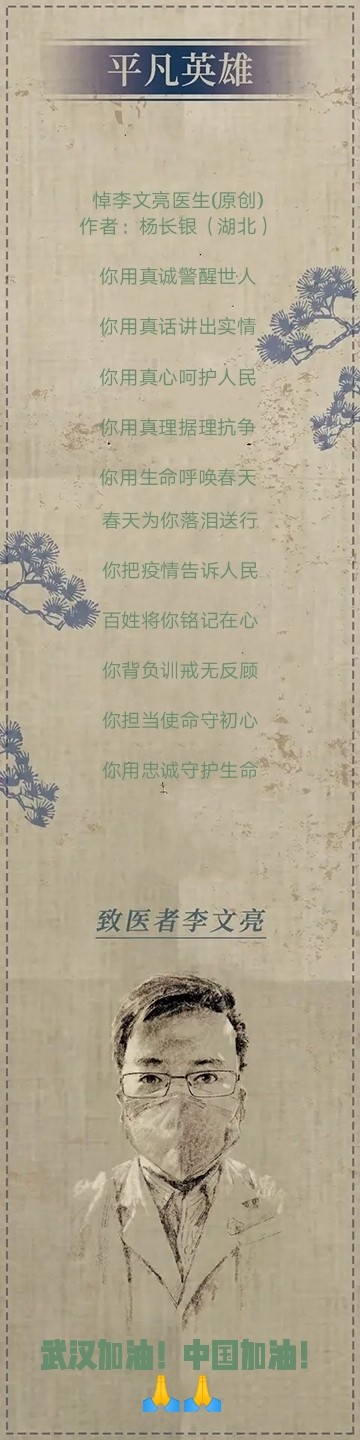 平凡英雄
悼李文亮医生(原创)
作者：杨长银（湖北）
你用真诚警醒世人
你用真话讲出实情
你用真心呵护人民
你用真理据理抗争
你用生命呼唤春天
春天为你落泪送行
你把疫情告诉人民
百姓将你铭记在心
你背负训戒无反顾
你担当使命守初心
你用忠诚守护生命
致医者李文亮
武汉加油！中国加油！